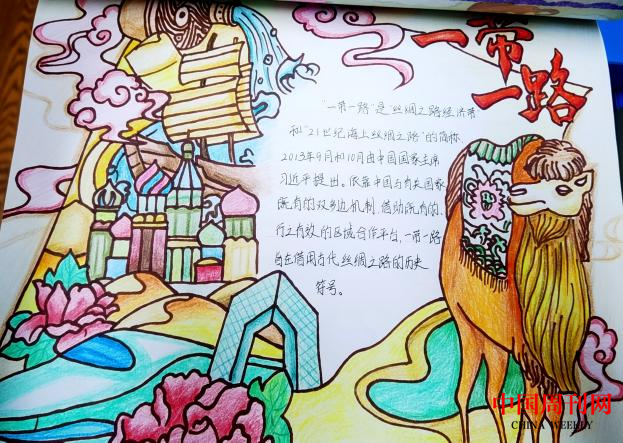 一带
一路
"一带一路"是"丝绸之路经济带
和"21世纪海上丝绸之路"的简称
2013年9月和10月由中国国家主席
习近平提出。依靠中国与有关国家
既有的双多边机制,借助既有的、
行之有效的区域合作平台,一带一路
旨在借用古代丝绸之路的历史
符号。
中国周刊网
CHINA WEEKLY